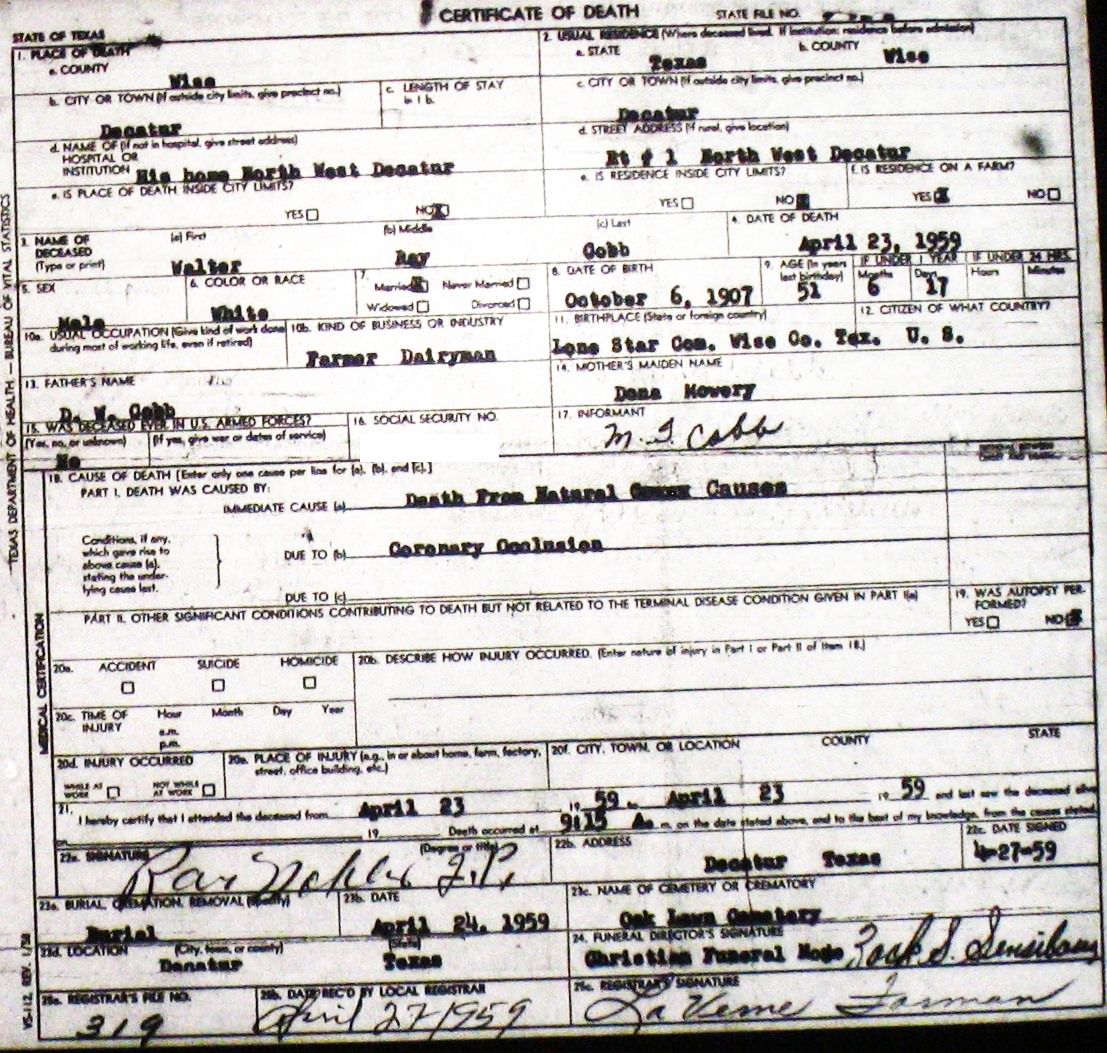 CERTIFICATE OF DEATH STATE FILE NO.
STATE OF TEXAS
1. PLACE OF DEATH
a. COUNTY
Wise
2. USUAL RESIDENCE (Where deceased lived. If institution: residence before admission)
a. STATE b. COUNTY
Texas Wise
b. CITY OR TOWN (If outside city limits, give precinct no.)
Decatur
c. LENGTH OF STAY
in 1 b.
c. CITY OR TOWN (If outside city limits, give precinct no.)
Decatur
d. NAME OF (If not in hospital, give street address)
HOSPITAL OR
INSTITUTION His home North West Decatur
d. STREET ADDRESS (If rural, give location)
Rt # 1 North West Decatur
e. IS PLACE OF DEATH INSIDE CITY LIMITS?
YES NO X
e. IS RESIDENCE INSIDE CITY LIMITS?
YES NO X
f. IS RESIDENCE ON A FARM?
YES X NO
3. NAME OF
DECEASED
(Type or print)
(a) First (b) Middle (c) Last
Walter Ray Cobb
4. DATE OF DEATH
April 23, 1959
5. SEX
Male
6. COLOR OR RACE
White
7.
Married X Never Married
Widowed Divorced
8. DATE OF BIRTH
October 6, 1907
9. AGE (In years
last birthday)
51
IF UNDER 1 YEAR
Months Days
6 17
IF UNDER 24 HRS.
Hours Minutes
10a. USUAL OCCUPATION (Give kind of work done
during most of working life, even if retired)
10b. KIND OF BUSINESS OR INDUSTRY
Farmer Dairyman
11. BIRTHPLACE (State or foreign country)
Lone Star Com. Wise Co. Tex.
12. CITIZEN OF WHAT COUNTRY?
U. S.
13. FATHER'S NAME
D. W. Cobb
14. MOTHER'S MAIDEN NAME
Dona Mowery
15. WAS DECEASED EVER IN U.S. ARMED FORCES?
(Yes, no, or unknown) (If yes, give war or dates of service)
No
16. SOCIAL SECURITY NO.
17. INFORMANT
Cobb
18. CAUSE OF DEATH [Enter only one cause per line for (a), (b), and (c).]
PART I. DEATH WAS CAUSED BY:
IMMEDIATE CAUSE (a) Death From Natural Causes
Conditions, if any,
which gave rise to
above cause (a),
stating the under-
lying cause last.
DUE TO (b) Coronary Occlusion
DUE TO (c)
PART II. OTHER SIGNIFICANT CONDITIONS CONTRIBUTING TO DEATH BUT NOT RELATED TO THE TERMINAL DISEASE CONDITION GIVEN IN PART I(a)
19. WAS AUTOPSY PER-
FORMED?
YES NO X
20a. ACCIDENT SUICIDE HOMICIDE
20b. DESCRIBE HOW INJURY OCCURRED. (Enter nature of injury in Part I or Part II of Item 18.)
20c. TIME OF
INJURY
Hour Month Day Year
a.m.
p.m.
20d. INJURY OCCURRED
WHILE AT
WORK
NOT WHILE
AT WORK
20e. PLACE OF INJURY (e.g., in or about home, farm, factory,
street, office building, etc.)
20f. CITY, TOWN, OR LOCATION COUNTY STATE
21. I hereby certify that I attended the deceased from April 23 19 59 to April 23 19 59 and last saw the deceased alive
on 19 Death occurred at 9:15 A. m. on the date stated above, and to the best of my knowledge, from the causes stated.
22a. SIGNATURE (Degree or title)
Ray J.P.
22b. ADDRESS
Decatur Texas
22c. DATE SIGNED
4-27-59
23a. BURIAL, CREMATION, REMOVAL (Specify)
Burial
23b. DATE
April 24, 1959
23c. NAME OF CEMETERY OR CREMATORY
Oak Lawn Cemetery
23d. LOCATION (City, town, or county) (State)
Decatur Texas
24. FUNERAL DIRECTOR'S SIGNATURE
Christian Funeral Home
25a. REGISTRAR'S FILE NO.
319
25b. DATE REC'D BY LOCAL REGISTRAR
April 27 1959
25c. REGISTRAR'S SIGNATURE
La Verne Forman
TEXAS DEPARTMENT OF HEALTH — BUREAU OF VITAL STATISTICS
MEDICAL CERTIFICATION
VS-112 REV. 1/58